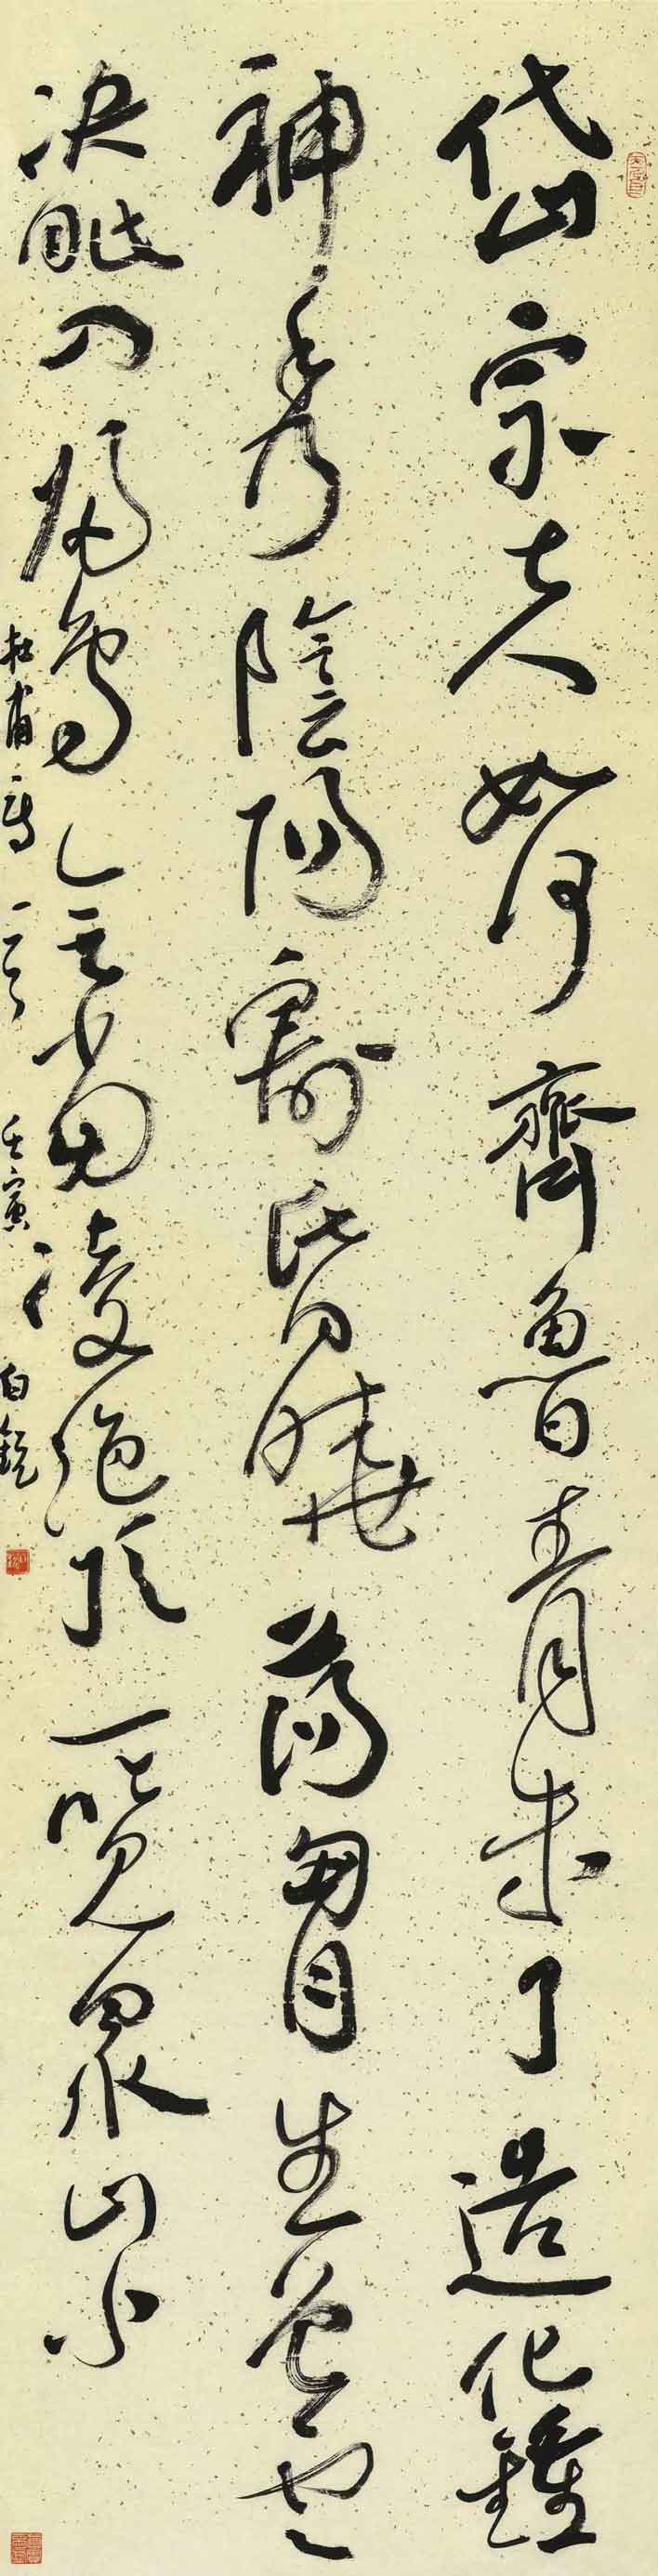 岱宗夫如何齊魯青未了造化鍾
神秀陰陽割昏曉蕩胷生曾雲
決眦入歸鳥會當凌絕頂一覽眾山小
杜甫詩一首 壬寅